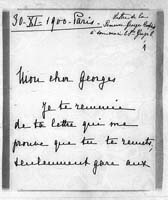 30-XI-1900. Paris-
Lettre de la
Mon cher Georges
Je te remercie
de ta lettre qui me
prouve que tu te remets,
seulement gare aux